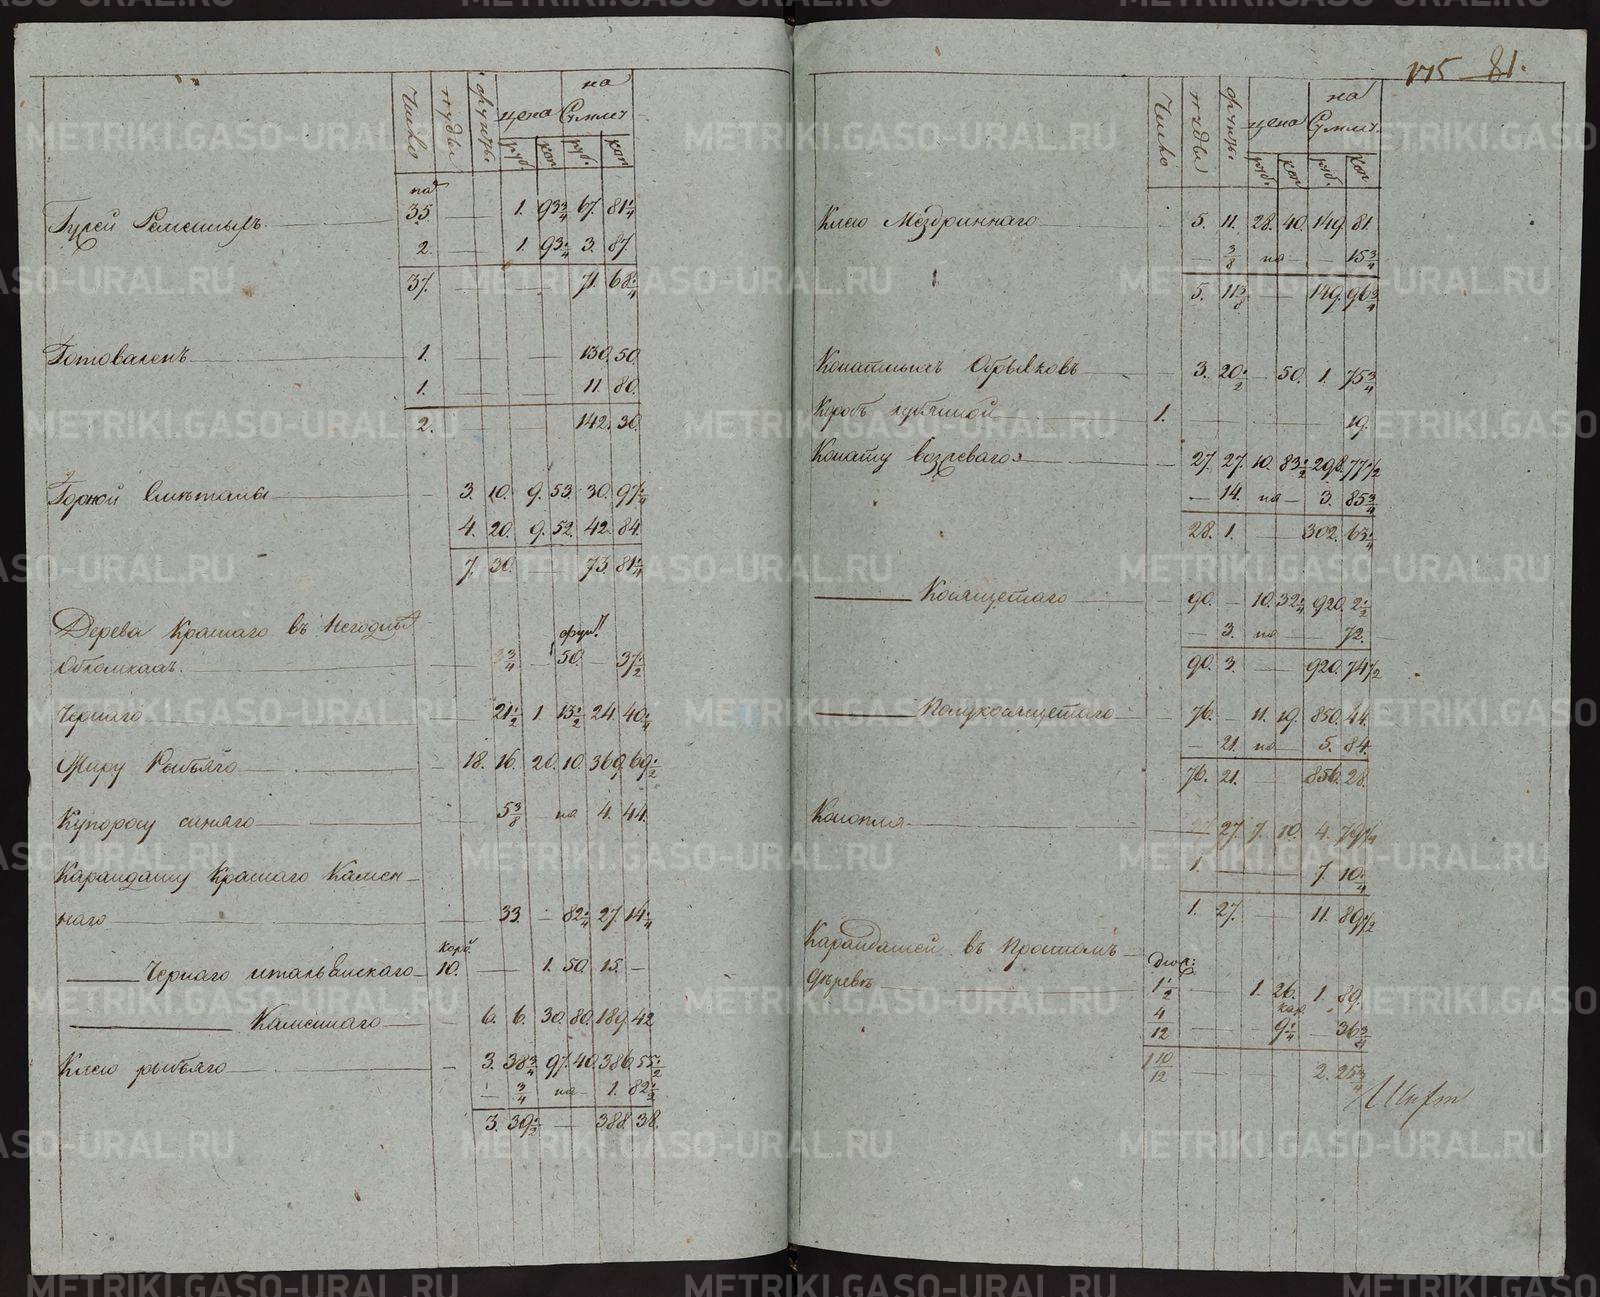 Число пуды фунты цена на Сумму
руб. коп руб. коп
пар
Гужей Ременныхъ 35 — 1. 93 3/4 67. 81 1/4
2. 1. 93 1/4 3. 87
37. 71. 68 1/4
Готовалень 1. 130. 50.
1. 11 80.
2. 142. 30.
Горной 3. 10. 9. 53. 30. 97 1/4
4. 20. 9. 52. 42. 84.
7. 30. 73. 81 1/4
Дерева Краснаго въ Негодныхъ фун.
Обломкахъ 3/4 — 50. — 37 1/2
Чернаго 21 1/2 1. 13 1/2 24. 40 1/4
Жиру Рыбьяго 18. 16. 20. 10. 369. 69 1/2
Купоросу синяго 5 3/8 — на 4. 44.
Карандашу Краснаго Камен-
наго 33. — 82 1/4 27. 14 1/4
кор.
Чернаго итальянскаго 10. — 1. 50. 15. —
Каменнаго 6. 6. 30. 80. 189. 42
Клею рыбьяго 3. 38 3/4 97. 40. 386. 55 1/2
— 3/4 на 1. 82 1/2
3. 39 1/2 — 388. 38.
175 81.
Число пуды фунты цена на Сумму
руб. коп руб. коп
Клею Мездриннаго 5. 11. 28. 40. 149. 81.
— 3/8 на — 15 3/4
5. 11 3/8 — 149. 96 3/4
Конатныхъ Обрывковъ 3. 20 1/2 — 50. 1. 75 3/4
Коробъ лубяной 1. 19.
Конату 27. 27. 10. 83 1/2 298. 77 1/2
— 14. на — 3. 85 3/4
28. 1. — 302. 63 1/4
90. — 10. 32 1/4 920. 2 1/2
— 3. на — 72.
90. 3. — 920. 74 1/2
76. — 11. 19. 850. 44.
— 21. на 5. 84.
76. 21. — 856. 28.
Конопля 27. 7. 10. 4. 79 1/4
1. — 7. 10 1/4
1. 27. — 11. 89 1/2
Карандашей въ простомъ
Дюж:
деревѣ 1 1/2 — 1. 26. 1. 89.
кар.
4/12 — 9 1/4 — 36 3/4
1 10/12 — 2. 25 3/4
METRIKI.GASO-URAL.RU